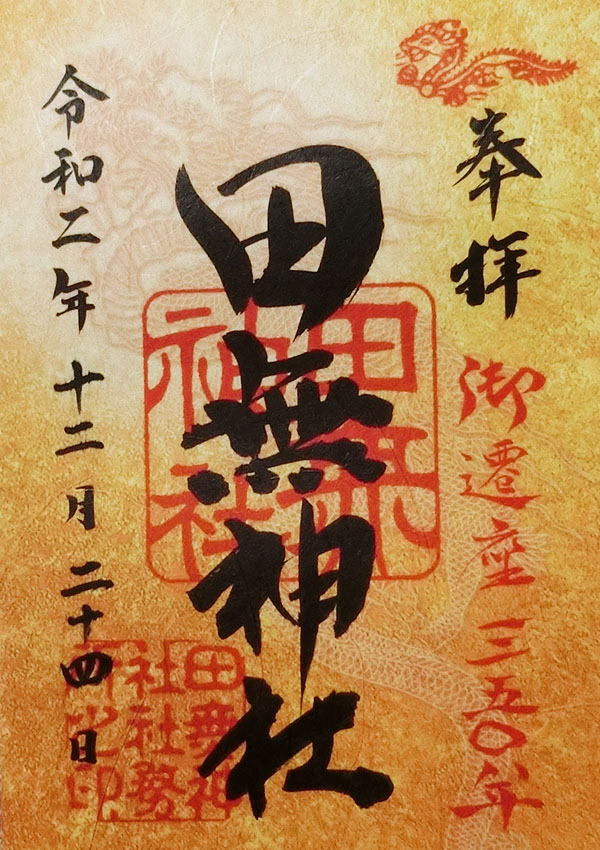 奉拝
御遷座三五〇年
田無神社
田無神社
令和二年十二月二十四日
田無神
社社務
所之印